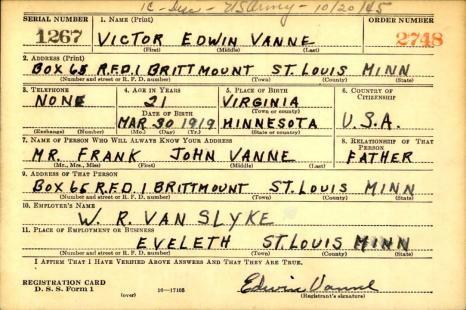 1C - Disc - US Army - 10/20/45
SERIAL NUMBER 1. NAME (Print) ORDER NUMBER
1267 VICTOR EDWIN VANNE 2748
(First) (Middle) (Last)
2. ADDRESS (Print)
BOX 65 R.F.D. 1 BRITTMOUNT ST. LOUIS MINN
(Number and street or R. F. D. number) (Town) (County) (State)
3. TELEPHONE 4. AGE IN YEARS 5. PLACE OF BIRTH 6. COUNTRY OF CITIZENSHIP
NONE 21 VIRGINIA
(Town or county)
DATE OF BIRTH
MAR 30 1919 MINNESOTA U.S.A.
(Exchange) (Number) (Mo.) (Day) (Yr.) (State or country)
7. NAME OF PERSON WHO WILL ALWAYS KNOW YOUR ADDRESS 8. RELATIONSHIP OF THAT PERSON
MR. FRANK JOHN VANNE FATHER
(Mr., Mrs., Miss) (First) (Middle) (Last)
9. ADDRESS OF THAT PERSON
BOX 65 R.F.D. 1 BRITTMOUNT ST. LOUIS MINN
(Number and street or R. F. D. number) (Town) (County) (State)
10. EMPLOYER'S NAME
W. R. VAN SLYKE
11. PLACE OF EMPLOYMENT OR BUSINESS
EVELETH ST. LOUIS MINN
(Number and street or R. F. D. number) (Town) (County) (State)
I AFFIRM THAT I HAVE VERIFIED ABOVE ANSWERS AND THAT THEY ARE TRUE.
REGISTRATION CARD
D. S. S. Form 1 (over) 16—17105 Edwin Vanne
(Registrant's signature)